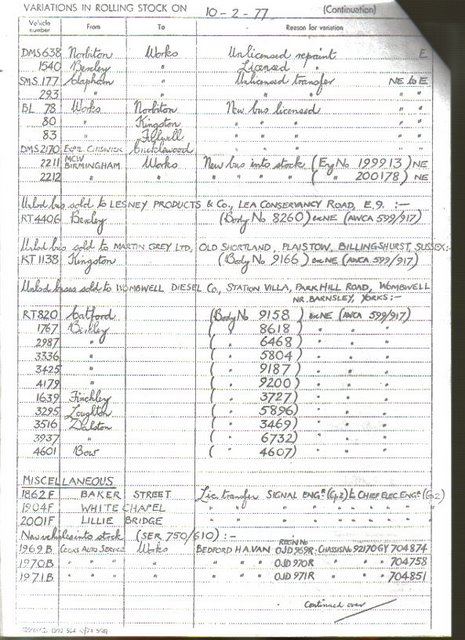 VARIATIONS IN ROLLING STOCK ON 10-2-77 (Continuation)
Vehicle number From To Reason for variation
DMS 638 Norbiton Works Unlicensed repaint E
1540 Bexley " Licensed "
SMS 177 Clapham " Unlicensed transfer NE to E
293 " " " " " "
BL 78 Works Norbiton New bus licensed
80 " Kingston " " "
83 " Elfwell " " "
DMS 2170 Cricklewood " " "
2211 MCW BIRMINGHAM Works New bus into stock (Eng No 199913) NE
2212 " " " " " " ( " " 200178) NE
Unlsd bus sold to LESNEY PRODUCTS & Co., LEA CONSERVANCY ROAD, E.9. :-
RT4406 Bexley (Body No 8260) ex NE (AWCA 599/917)
Unlsd bus sold to MARTIN GREY LTD, OLD SHORTLAND, PLAISTOW, BILLINGSHURST, SUSSEX:-
RT1138 Kingston (Body No 9166) ex NE (AWCA 599/917)
Unlsd buses sold to WOMBWELL DIESEL Co., STATION VILLA, PARK HILL ROAD, WOMBWELL
NR. BARNSLEY, YORKS:-
RT820 Catford (Body No 9158) ex NE (AWCA 599/917)
1767 Bexley ( " 8618) " " "
2987 " ( " 6468) " " "
3336 " ( " 5804) " " "
3425 " ( " 9187) " " "
4179 " ( " 9200) " " "
1639 Finchley ( " 3727) " " "
3295 Loughton ( " 5896) " " "
3516 Dalston ( " 3469) " " "
3937 " ( " 6732) " " "
4601 Bow ( " 4607) " " "
MISCELLANEOUS
1862F BAKER STREET Lic. transfer SIGNAL ENGR (Gp2) to CHIEF ELEC. ENGR (Gp2)
1904F WHITECHAPEL " " " " " "
2001F LILLIE BRIDGE " " " " " "
New vehicles into stock (SER 750/610) :-
REGN No
1969B Works BEDFORD HA VAN OJD 969R CHASSIS No 92170GY 704874
1970B " " " " " OJD 970R " " 704758
1971B " " " " " OJD 971R " " 704851
Continued over